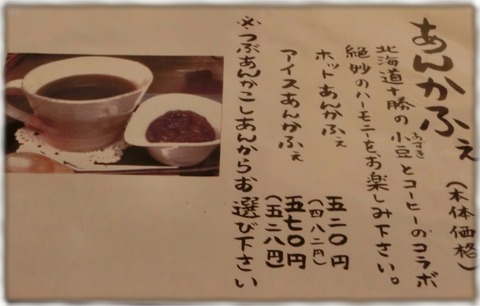 あんかふぇ
(本体価格)
北海道十勝の小豆とコーヒーのコラボ
あずき
絶妙のハーモニーをお楽しみ下さい。
ホットあんかふぇ 五二〇円
(四八二円)
アイスあんかふぇ 五七〇円
(五二八円)
※つぶあんかこしあんからお選び下さい